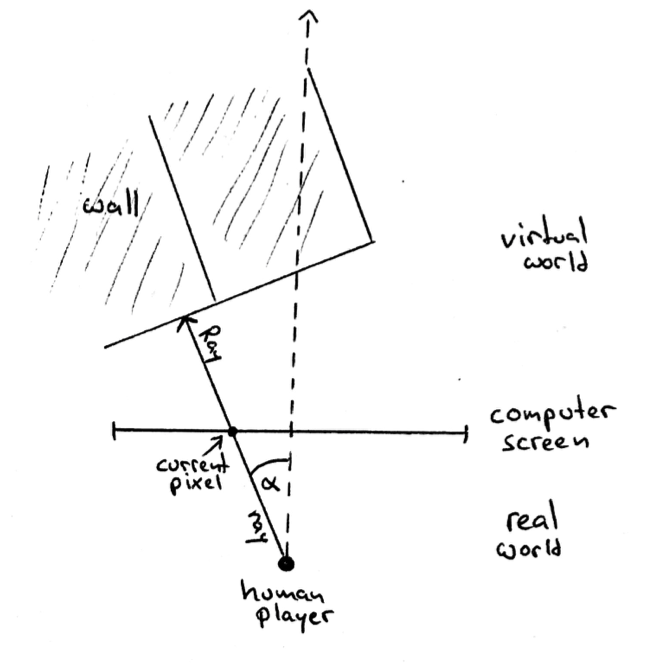 wall
virtual
world
Ray
computer
screen
current
pixel
α
real
world
human
player